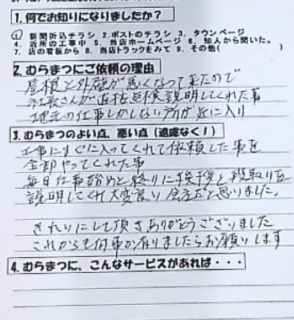 1. 何でお知りになりましたか?
① 新聞折込チラシ 2. ポストのチラシ 3. タウンページ
4. 近所の工事中 5. 当店ホームページ 6. 知人から聞いた。
7. 店の看板から 8. 当店トラックをみて 9. その他(　　)
2. むらまつにご依頼の理由
屋根と外壁が悪くなって来たので
さんが直接点検説明してくれた事
地元の仕事しかしない所が気に入り
3. むらまつのよい点、悪い点(遠慮なく!)
工事にすぐに入ってくれて依頼した事を
全部やってくれた事
毎日仕事始めと終りに挨拶と段取りを
説明してくれ大変良い会社だと思いました。
きれいにして頂きありがとうございました
これからも何事か有りましたらお願いします
4. むらまつに、こんなサービスがあれば・・・